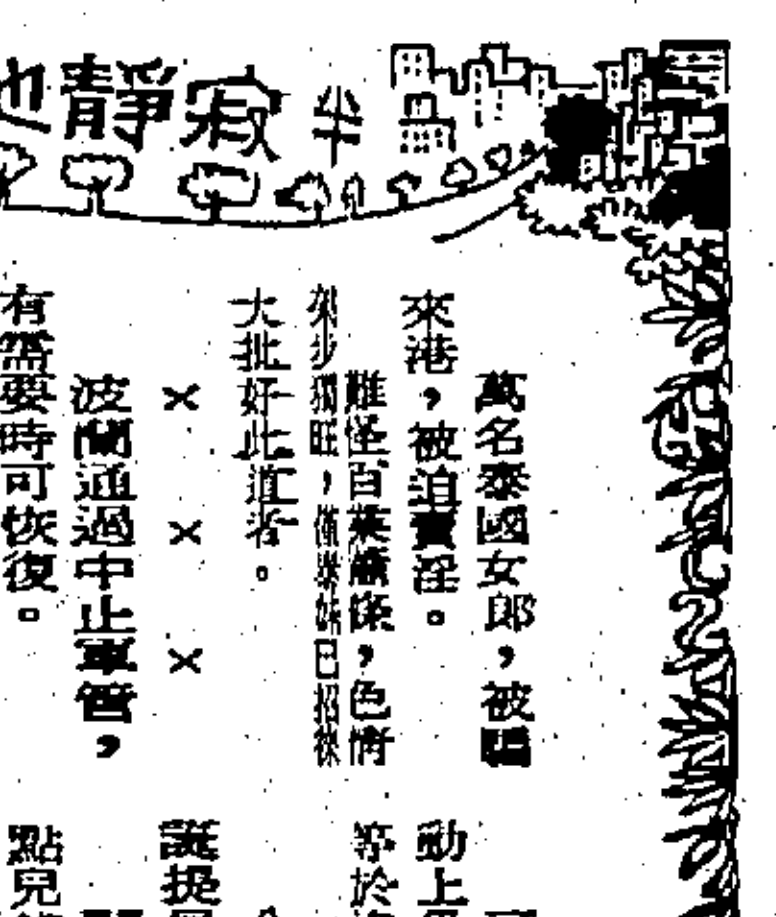 半寂靜也
萬名泰國女郎，被騙
來港，被迫賣淫。
難怪百業蕭條，色情
架步獨旺，僅泰妹已招徠
大批好此道者。
×××
波蘭通過中止軍管，
有需要時可恢復。
動上
等於
誕提
點兒